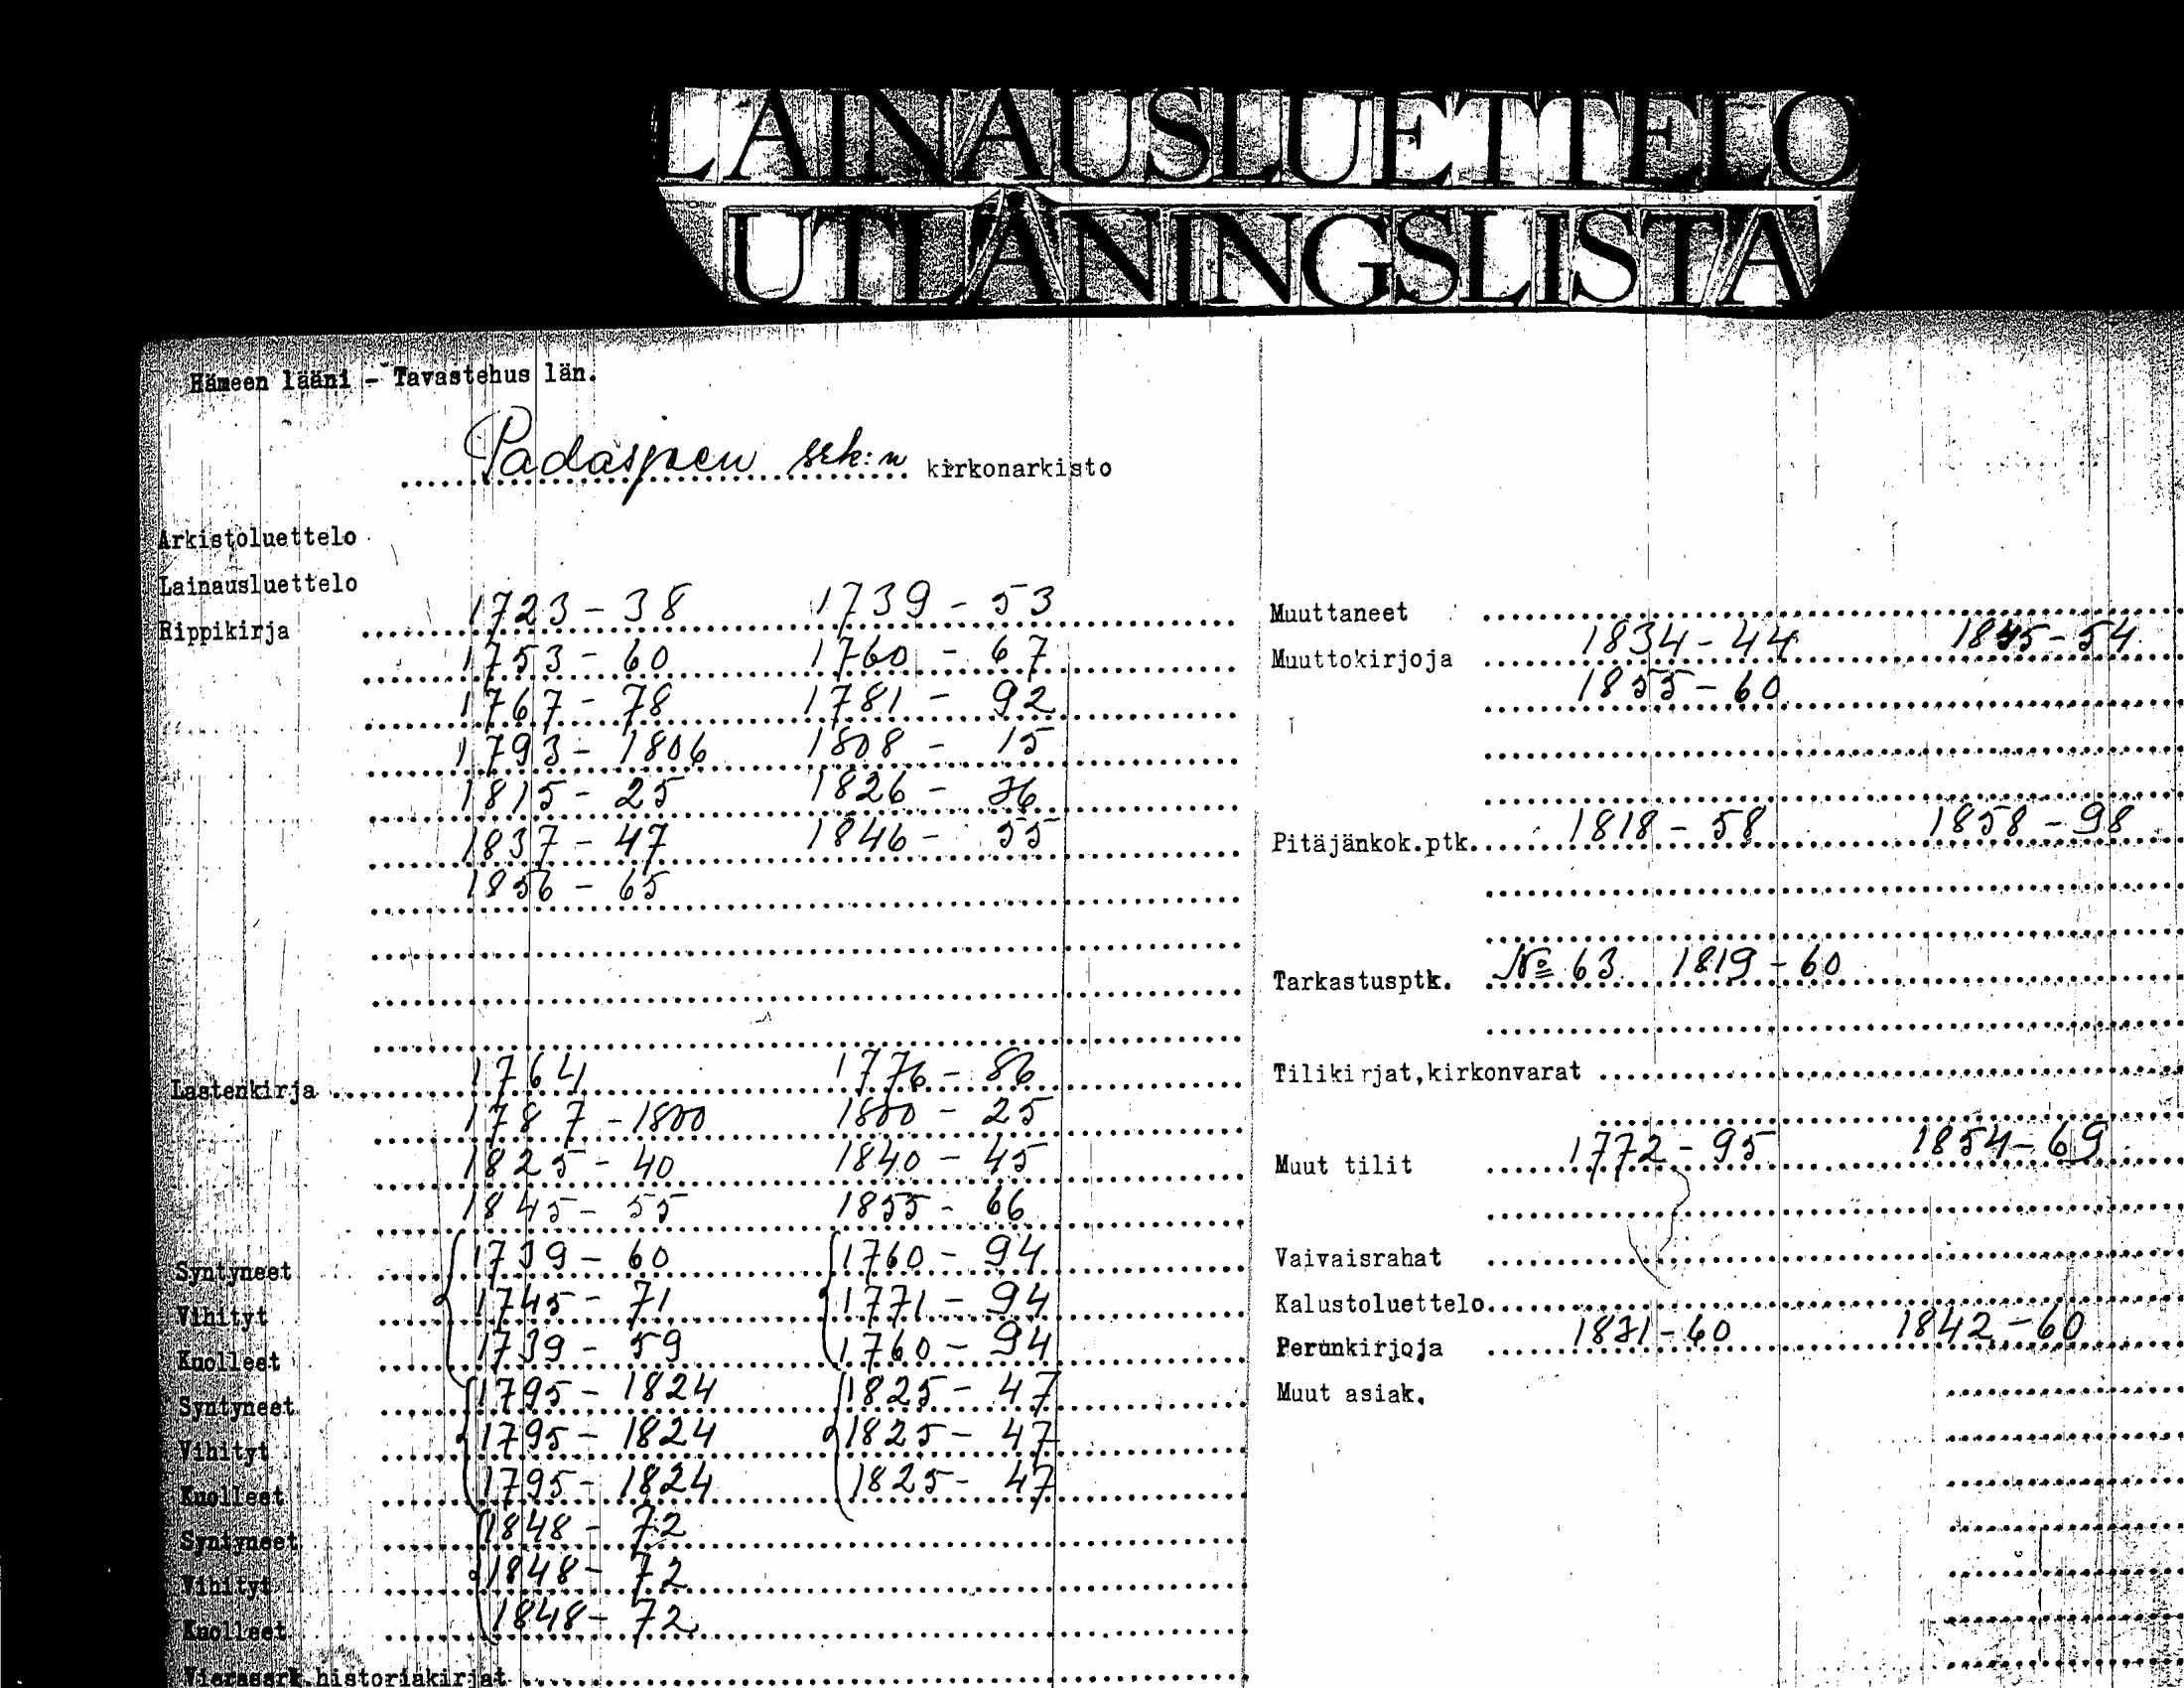 LAINAUSLUETTELO
UTLÅNINGSLISTA
Hämeen lääni - Tavastehus län.
Padasjoen srk:n kirkonarkisto
Arkistoluettelo
Lainausluettelo
Rippikirja 1723 - 38 1739 - 53
1753 - 60 1760 - 67
1767 - 78 1781 - 92
1793 - 1806 1808 - 15
1815 - 25 1826 - 36
1837 - 47 1846 - 55
1856 - 65
Lastenkirja 1764 1776 - 86
1787 - 1800 1800 - 25
1825 - 40 1840 - 45
1845 - 55 1855 - 66
Syntyneet 1739 - 60 1760 - 94
Vihityt 1745 - 71 1771 - 94
Kuolleet 1739 - 59 1760 - 94
Syntyneet 1795 - 1824 1825 - 47
Vihityt 1795 - 1824 1825 - 47
Kuolleet 1795 - 1824 1825 - 47
Syntyneet 1848 - 72
Vihityt 1848 - 72
Kuolleet 1848 - 72
Vierassrk.historiakirjat
Muuttaneet
Muuttokirjoja 1834 - 44 1845 - 54
1855 - 60
Pitäjänkok.ptk. 1818 - 58 1858 - 98
Tarkastusptk. No 63 1819 - 60
Tilikirjat,kirkonvarat
Muut tilit 1772 - 95 1854 - 69
Vaivaisrahat
Kalustoluettelo
Perunkirjoja 1831 - 60 1842 - 60
Muut asiak.